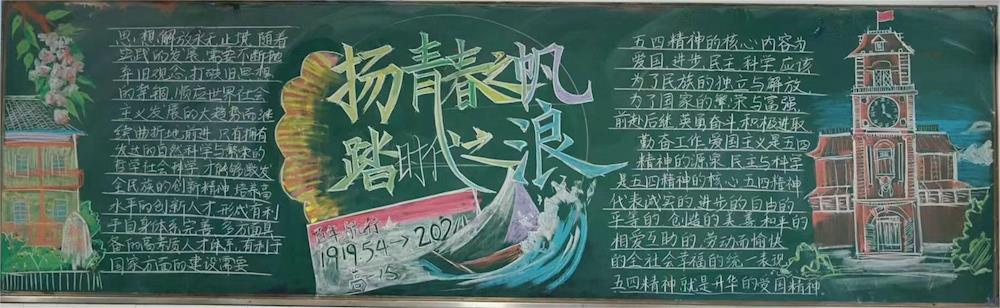 思想解放永无止境,随着
实践的发展,需要不断抛
弃旧观念,打破旧思想
的束缚,顺应世界社会
主义发展的大趋势而继
续曲折地前进.只有拥有
发达的自然科学与繁荣的
哲学社会科学才能够激发
全民族的创新精神,培养高
水平的创新人才,形成有利
于自身体系完善,多方面具
备的高素质人才体系,有利于
国家方面的建设需要
扬青春之帆
踏时代之浪
青年旅行
1919.5.4→202
高一
五四精神的核心内容为
爱国、进步、民主、科学,应该
为了民族的独立与解放,
为了国家的繁荣与富强,
前赴后继,英勇奋斗和积极进取,
勤奋工作,爱国主义是五四
精神的源泉,民主与科学
是五四精神的核心,五四精神
代表诚实的,进步的,自由的
平等的,创造的,美善,和平的
相爱互助的,劳动而愉快
的,全社会幸福的统一表现.
五四精神就是升华的爱国精神